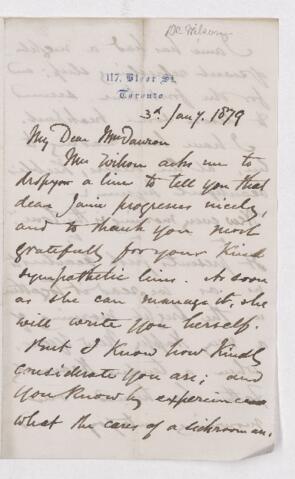 Dr Wilson
117, Bloor St.
Toronto
3d Jany. 1879
My Dear Mrs Dawson
Mrs Wilson asks me to
drop you a line to tell you that
dear Janie progresses nicely,
and to thank you most
gratefully for your kind
sympathetic lines. As soon
as she can manage it, she
will write you herself.
But I know how kindly
considerate you are; and
you know by experience
what the cares of a sickroom are.